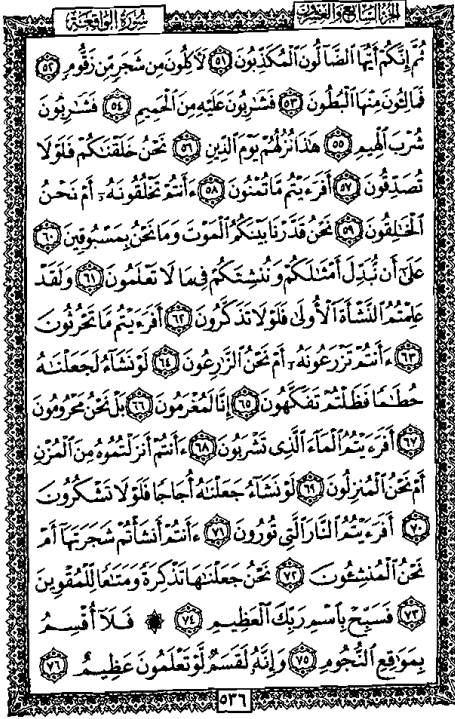 الجزء السابع والعشرون سورة الواقعة
ثُمَّ إِنَّكُمْ أَيُّهَا الضَّآلُّونَ الْمُكَذِّبُونَ ﴿٥١﴾ لَآكِلُونَ مِن شَجَرٍ مِّن زَقُّومٍ ﴿٥٢﴾
فَمَالِـُٔونَ مِنْهَا الْبُطُونَ ﴿٥٣﴾ فَشَارِبُونَ عَلَيْهِ مِنَ الْحَمِيمِ ﴿٥٤﴾ فَشَارِبُونَ
شُرْبَ الْهِيمِ ﴿٥٥﴾ هَٰذَا نُزُلُهُمْ يَوْمَ الدِّينِ ﴿٥٦﴾ نَحْنُ خَلَقْنَاكُمْ فَلَوْلَا
تُصَدِّقُونَ ﴿٥٧﴾ أَفَرَءَيْتُم مَّا تُمْنُونَ ﴿٥٨﴾ ءَأَنتُمْ تَخْلُقُونَهُۥٓ أَمْ نَحْنُ
الْخَالِقُونَ ﴿٥٩﴾ نَحْنُ قَدَّرْنَا بَيْنَكُمُ الْمَوْتَ وَمَا نَحْنُ بِمَسْبُوقِينَ ﴿٦٠﴾
عَلَىٰٓ أَن نُّبَدِّلَ أَمْثَالَكُمْ وَنُنشِئَكُمْ فِي مَا لَا تَعْلَمُونَ ﴿٦١﴾ وَلَقَدْ
عَلِمْتُمُ النَّشْأَةَ الْأُولَىٰ فَلَوْلَا تَذَكَّرُونَ ﴿٦٢﴾ أَفَرَءَيْتُم مَّا تَحْرُثُونَ
﴿٦٣﴾ ءَأَنتُمْ تَزْرَعُونَهُۥٓ أَمْ نَحْنُ الزَّارِعُونَ ﴿٦٤﴾ لَوْ نَشَآءُ لَجَعَلْنَاهُ
حُطَامًا فَظَلْتُمْ تَفَكَّهُونَ ﴿٦٥﴾ إِنَّا لَمُغْرَمُونَ ﴿٦٦﴾ بَلْ نَحْنُ مَحْرُومُونَ
﴿٦٧﴾ أَفَرَءَيْتُمُ الْمَآءَ الَّذِي تَشْرَبُونَ ﴿٦٨﴾ ءَأَنتُمْ أَنزَلْتُمُوهُ مِنَ الْمُزْنِ
أَمْ نَحْنُ الْمُنزِلُونَ ﴿٦٩﴾ لَوْ نَشَآءُ جَعَلْنَاهُ أُجَاجًا فَلَوْلَا تَشْكُرُونَ
﴿٧٠﴾ أَفَرَءَيْتُمُ النَّارَ الَّتِي تُورُونَ ﴿٧١﴾ ءَأَنتُمْ أَنشَأْتُمْ شَجَرَتَهَآ أَمْ
نَحْنُ الْمُنشِـُٔونَ ﴿٧٢﴾ نَحْنُ جَعَلْنَاهَا تَذْكِرَةً وَمَتَاعًا لِّلْمُقْوِينَ
﴿٧٣﴾ فَسَبِّحْ بِاسْمِ رَبِّكَ الْعَظِيمِ ﴿٧٤﴾ ۞ فَلَآ أُقْسِمُ
بِمَوَاقِعِ النُّجُومِ ﴿٧٥﴾ وَإِنَّهُۥ لَقَسَمٌ لَّوْ تَعْلَمُونَ عَظِيمٌ ﴿٧٦﴾
٥٣٦